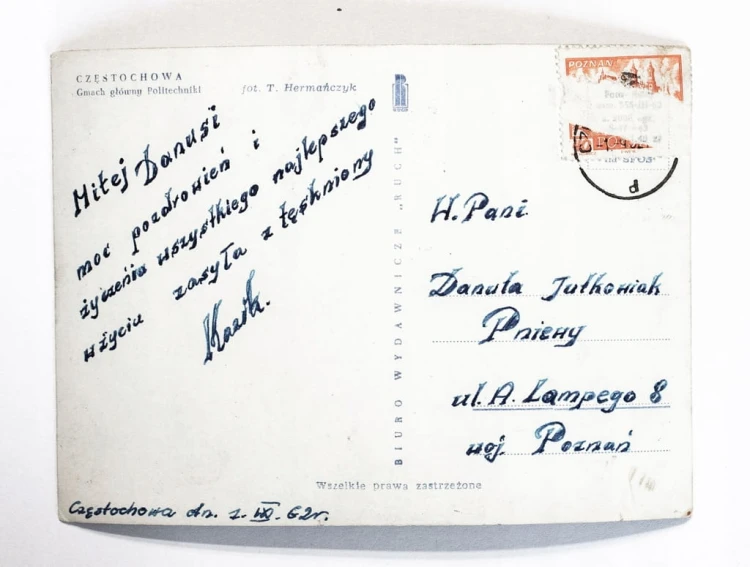 CZĘSTOCHOWA
Gmach główny Politechniki
fot. T. Hermańczyk
Miłej Danusi
moc pozdrowień i
życzenia wszystkiego najlepszego
w życiu zasyła z tęskniony
Kazik.
Częstochowa dn. 1. 62r.
BIURO WYDAWNICZE „RUCH"
Wszelkie prawa zastrzeżone
POZNAŃ
d
W. Pani
Danuta Jutkowiak
Pniewy
ul. A. Lampego 8
woj. Poznań